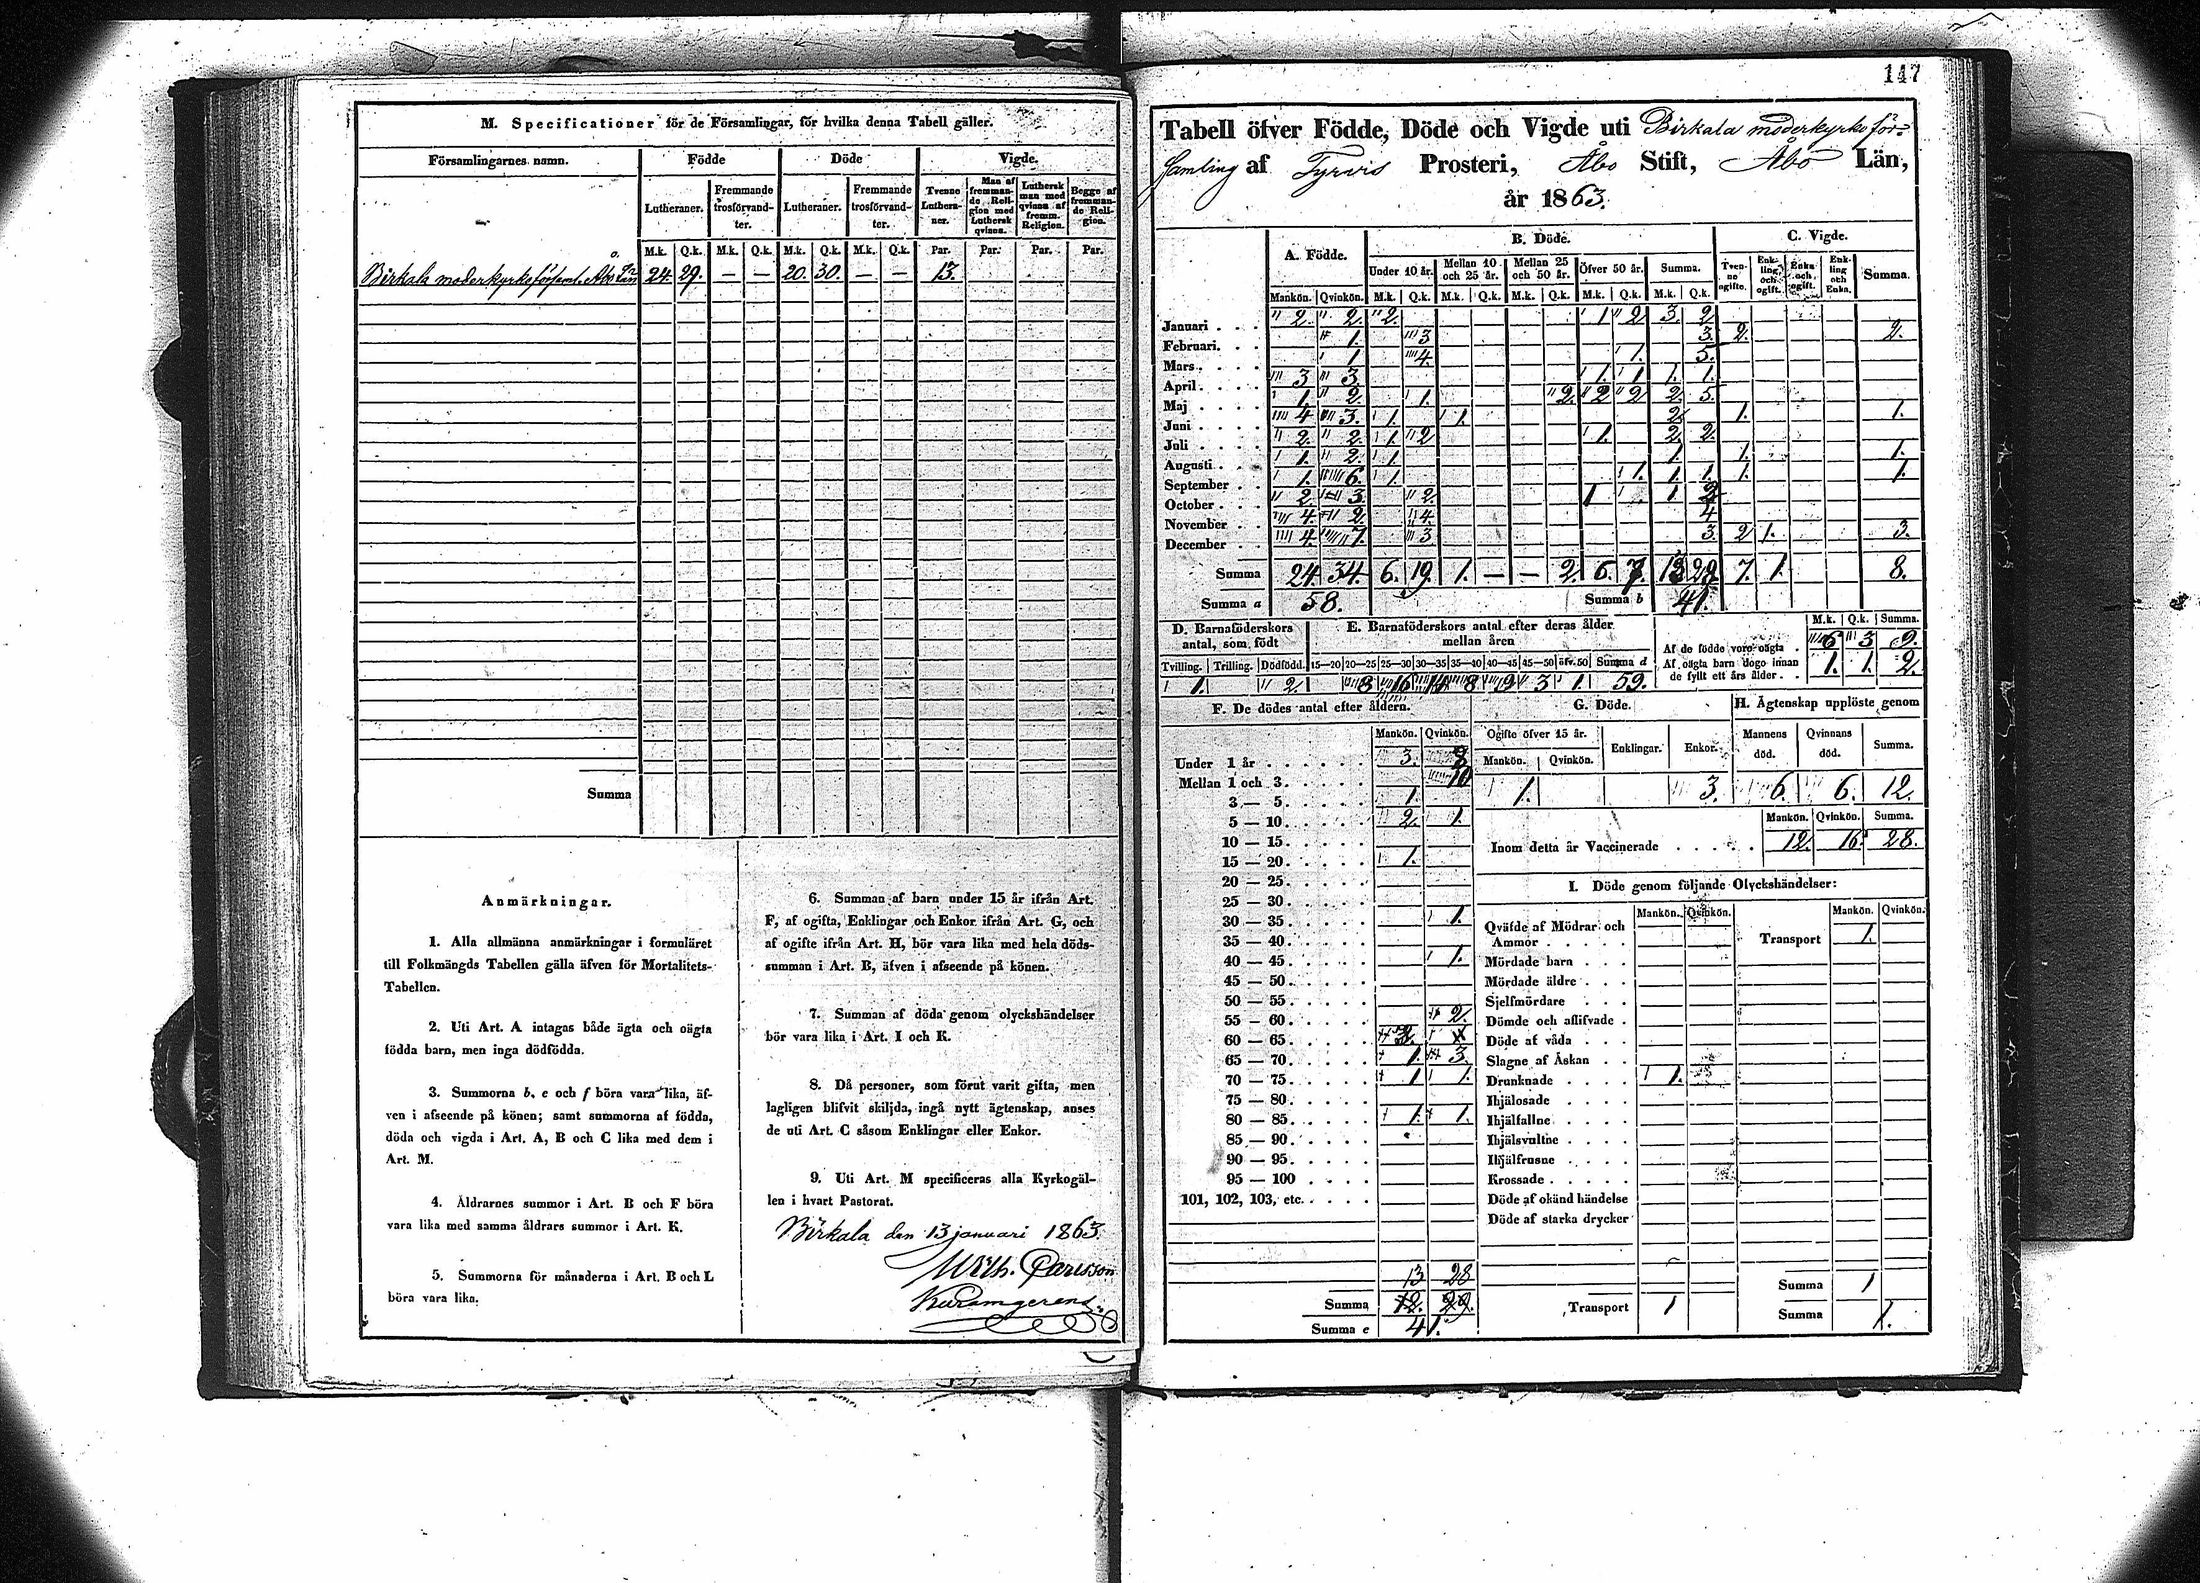 M. Specificationer för de Församlingar, för hvilka denna Tabell gäller.
Församlingarnes namn. Födde Döde Vigde.
Lutheraner. Fremmande trosförvandter. Lutheraner. Fremmande trosförvandter. Tvenne Lutheraner. Man af fremmande Religion med Luthersk qvinna. Luthersk man med qvinna af fremm. Religion. Begge af fremmande Religion.
M.k. Q.k. M.k. Q.k. M.k. Q.k. M.k. Q.k. Par. Par. Par. Par.
Birkala moderkyrkoförsaml. Åbo Län 24. 29. — — 20. 30. — — 13.
Summa
Anmärkningar.
1. Alla allmänna anmärkningar i formuläret
till Folkmängds Tabellen gälla äfven för Mortalitets-
Tabellen.
2. Uti Art. A intagas både ägta och oägta
födda barn, men inga dödfödda.
3. Summorna b, e och f böra vara lika, äf-
ven i afseende på könen; samt summorna af födda,
döda och vigda i Art. A, B och C lika med dem i
Art. M.
4. Åldrarnes summor i Art. B och F böra
vara lika med samma åldrars summor i Art. K.
5. Summorna för månaderna i Art. B och L
böra vara lika.
6. Summan af barn under 15 år ifrån Art.
F, af ogifta, Enklingar och Enkor ifrån Art. G, och
af ogifte ifrån Art. H, bör vara lika med hela döds-
summan i Art. B, äfven i afseende på könen.
7. Summan af döda genom olyckshändelser
bör vara lika i Art. I och K.
8. Då personer, som förut varit gifta, men
lagligen blifvit skiljda, ingå nytt ägtenskap, anses
de uti Art. C såsom Enklingar eller Enkor.
9. Uti Art. M specificeras alla Kyrkogäl-
len i hvart Pastorat.
Birkala den 13 januari 1863.
147
Tabell öfver Födde, Döde och Vigde uti Birkala moderkyrkoför-
samling af Tyrvis Prosteri, Åbo Stift, Åbo Län,
år 1863.
A. Födde. B. Döde. C. Vigde.
Under 10 år. Mellan 10 och 25 år. Mellan 25 och 50 år. Öfver 50 år. Summa. Tvenne ogifte. Enkling och ogift. Enka och ogift. Enkling och Enka. Summa.
Mankön. Qvinkön. M.k. Q.k. M.k. Q.k. M.k. Q.k. M.k. Q.k. M.k. Q.k.
Januari 2. 2. 2. 1 2 3. 2
Februari. 1. 3 3. 2. 2.
Mars 1 4. 1. 5.
April 3 3. 1. 1 1. 1.
Maj 1. 2. 1. 2. 2 2 2 5.
Juni 4 3. 1. 1. 2 1. 1.
Juli 2. 2. 1 2 1. 2 2.
Augusti 1. 2. 1 1. 1. 1.
September 1. 6. 1. 1. 1. 1. 1. 1.
October 2. 3. 2. 1 1 2
November 4. 2. 4. 4
December 4. 7. 3 3. 2 1. 3.
Summa 24. 34. 6. 19. 1. — — 2. 6. 7. 13 28 7. 1. 8.
Summa a 58. Summa b 41.
D. Barnaföderskors antal, som födt E. Barnaföderskors antal efter deras ålder mellan åren
Tvilling. Trilling. Dödfödd. 15—20 20—25 25—30 30—35 35—40 40—45 45—50 öfv. 50 Summa d
1. 2. 8 16 14 8 9 3 1. 59.
M.k. Q.k. Summa.
Af de födde voro oägta 6 3 9.
Af oägta barn dogo innan
de fyllt ett års ålder 1. 1. 2.
F. De dödes antal efter åldern.
Mankön. Qvinkön.
Under 1 år 3.
Mellan 1 och 3. 10
3 — 5. 1.
5 — 10. 2. 1.
10 — 15.
15 — 20. 1.
20 — 25.
25 — 30.
30 — 35. 1.
35 — 40.
40 — 45. 1.
45 — 50.
50 — 55.
55 — 60. 2.
60 — 65.
65 — 70. 1. 3.
70 — 75. 1 1.
75 — 80.
80 — 85. 1. 1.
85 — 90.
90 — 95.
95 — 100
101, 102, 103, etc.
13 28
Summa 12. 29.
Summa e 41.
G. Döde. H. Ägtenskap upplöste genom
Ogifte öfver 15 år. Enklingar. Enkor. Mannens död. Qvinnans död. Summa.
Mankön. Qvinkön.
1. 3. 6. 6. 12.
Mankön. Qvinkön. Summa.
Inom detta år Vaccinerade 12. 16. 28.
I. Döde genom följande Olyckshändelser:
Mankön. Qvinkön. Mankön. Qvinkön.
Qväfde af Mödrar och
Ammor Transport 1.
Mördade barn
Mördade äldre
Sjelfmördare
Dömde och aflifvade
Döde af våda
Slagne af Åskan
Drunknade 1.
Ihjälosade
Ihjälfallne
Ihjälsvultne
Ihjälfrusne
Krossade
Döde af okänd händelse
Döde af starka drycker
Summa 1
Transport 1 Summa 1.